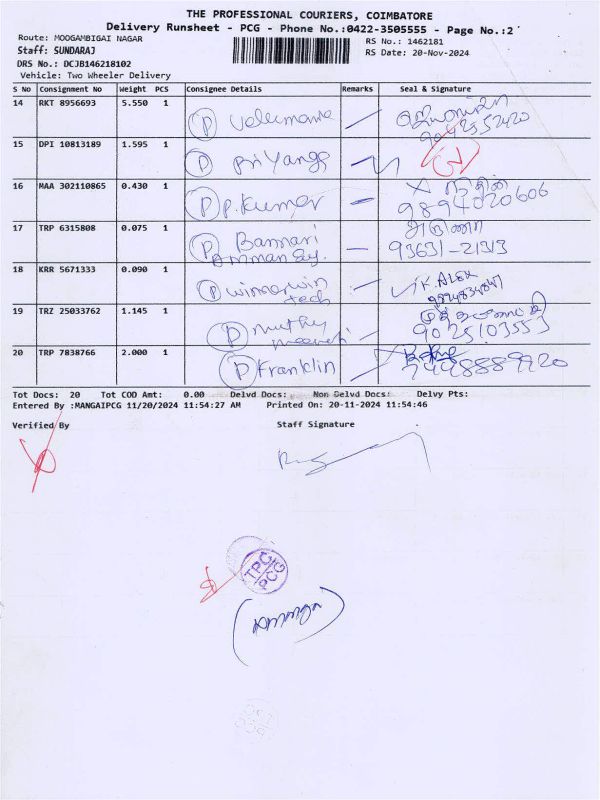 THE PROFESSIONAL COURIERS, COIMBATORE
Delivery Runsheet - PCG - Phone No.:0422-3505555 - Page No.:2
Route: MOOGAMBIGAI NAGAR
RS No.: 1462181
Staff: SUNDARAJ
RS Date: 20-Nov-2024
DRS No.: DCJB146218102
Vehicle: Two Wheeler Delivery
S No Consignment No Weight PCS Consignee Details Remarks Seal & Signature
14 RKT 8956693 5.550 1 P
9042552420
15 DPI 10813189 1.595 1 P Priyanga
16 MAA 302110865 0.430 1 P P.Kumar
9894020606
17 TRP 6315808 0.075 1 P Bannari
Amman Ey. 93631-21313
18 KRR 5671333 0.090 1 P K. ALEX
tech
19 TRZ 25033762 1.145 1 P muthu
9025103553
20 TRP 7838766 2.000 1 P Franklin
Tot Docs: 20 Tot COD Amt: 0.00 Delvd Docs: Non Delvd Docs: Delvy Pts:
Entered By :MANGAIPCG 11/20/2024 11:54:27 AM Printed On: 20-11-2024 11:54:46
Verified By Staff Signature
TPC
PCG